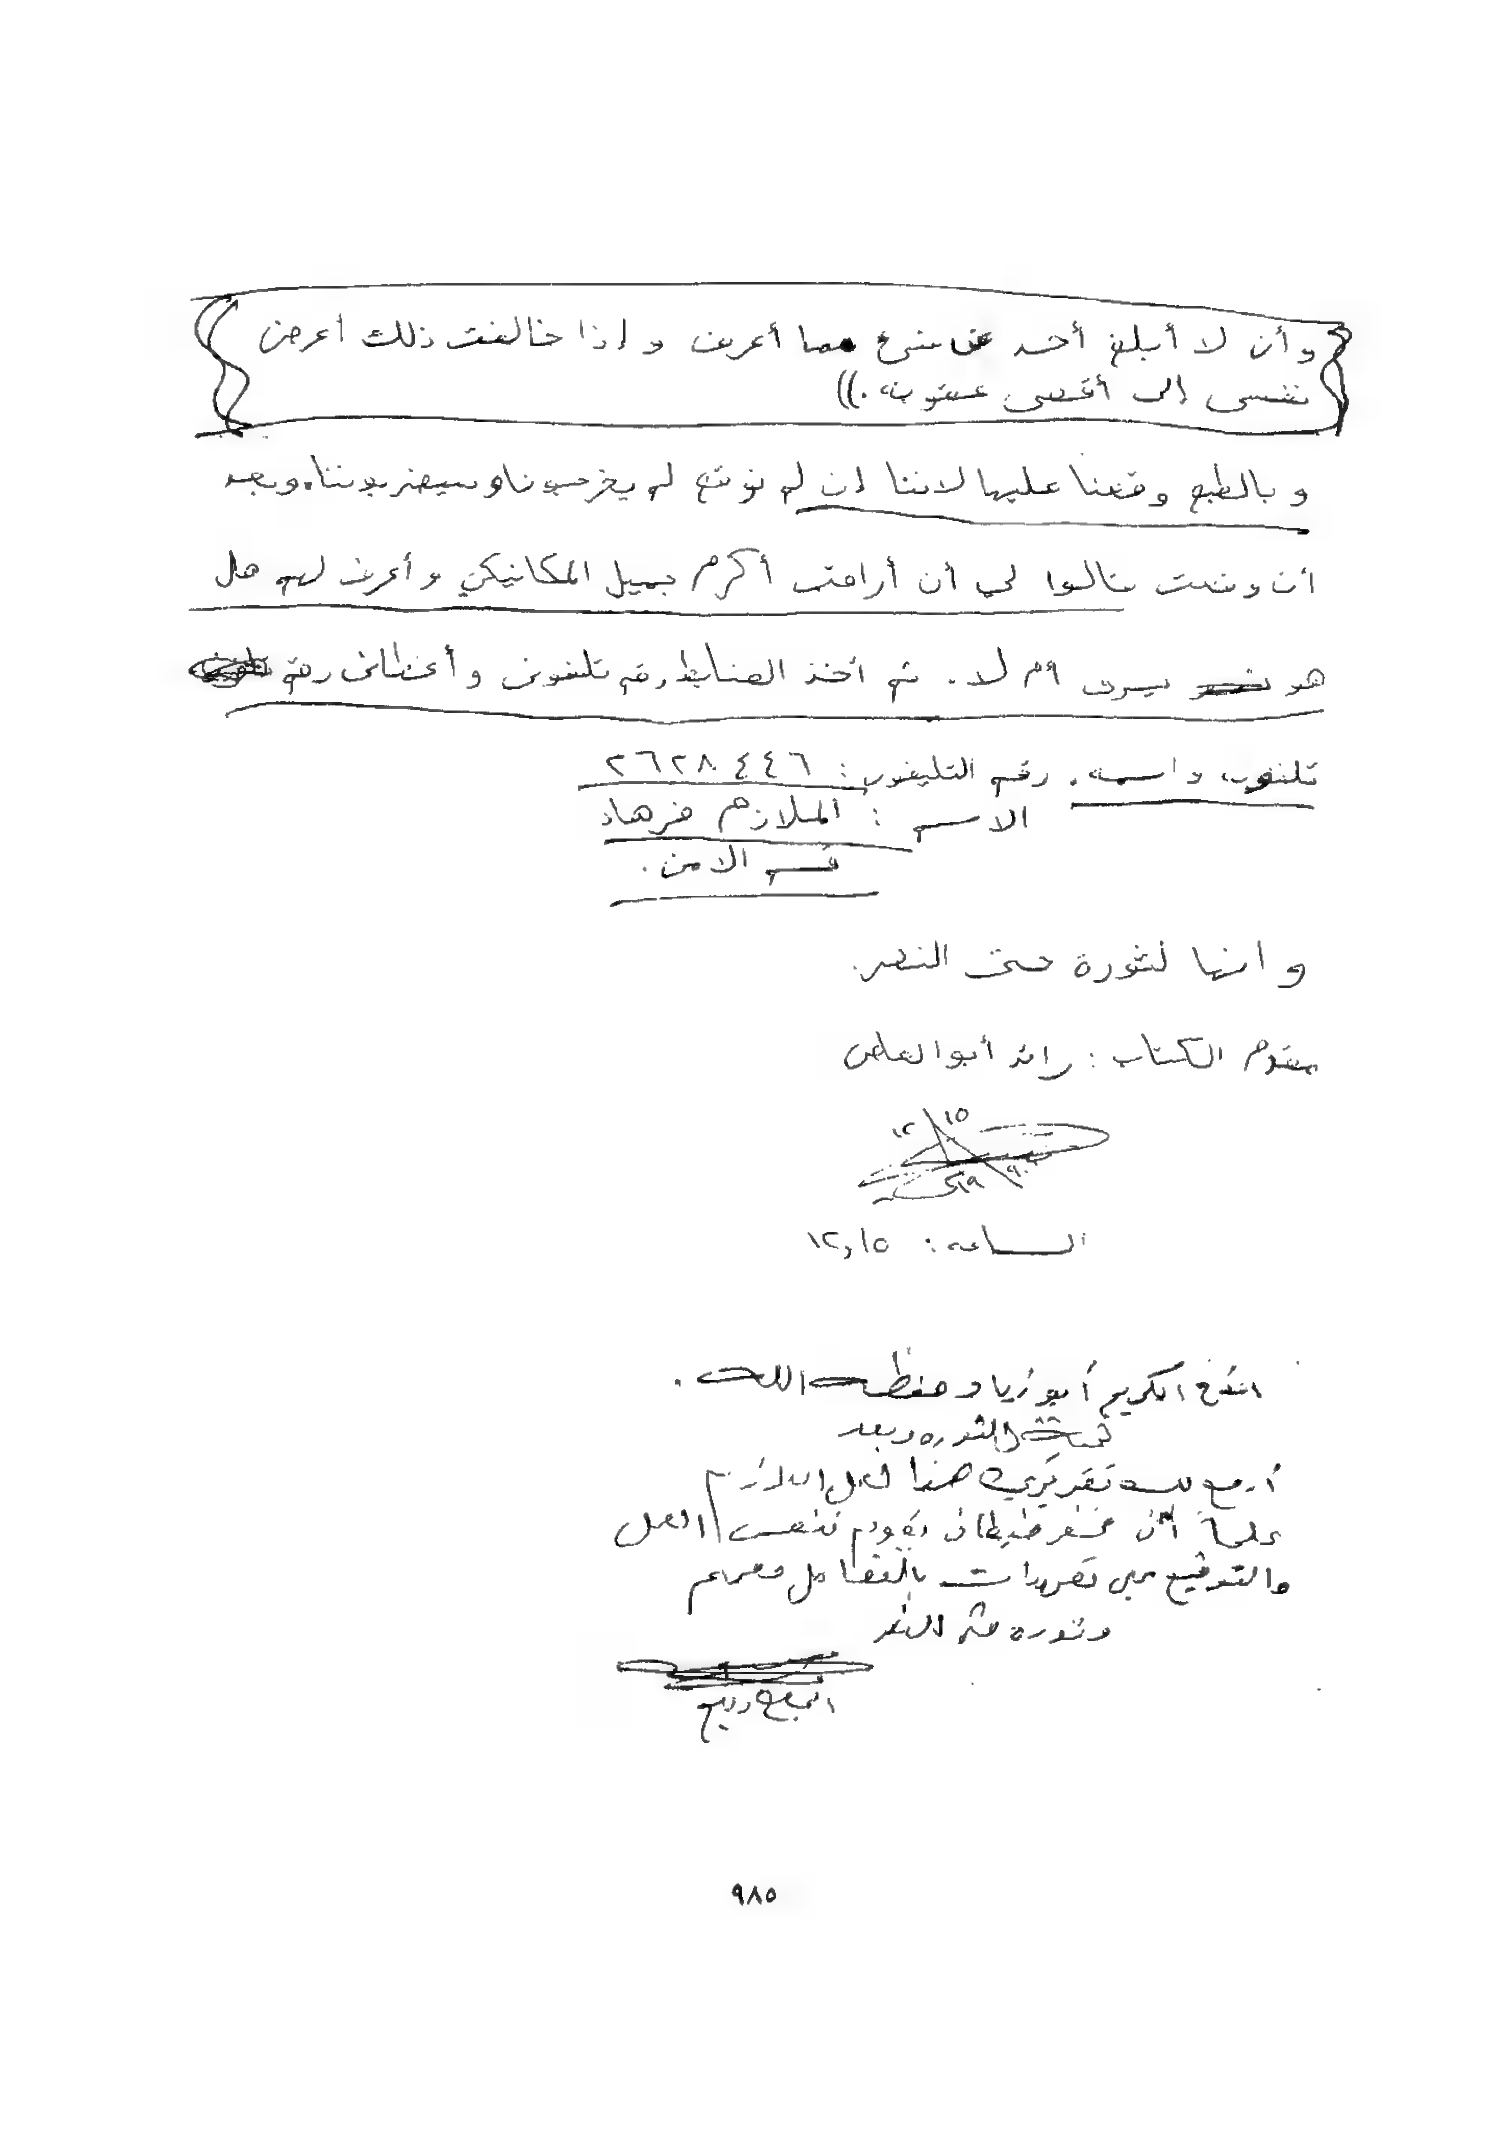 وأن لا أبلغ أحد عن شئ مما أعرف وإذا خالفت ذلك أعرض
نفسي إلى أقصى عقوبة .))
وبالطبع وقعنا عليها لاننا إن لم نوقع لم يخرجوننا وسيضربوننا. وبعد
أن وقعت قالوا لي أن أراقب أكرم جميل المكانيكي وأعرف لهم هل
هو يسرق أم لا. ثم أخذ الضابط رقم تلفوني وأعطاني رقم
تلفونه واسمه. رقم التليفون: ٢٦٢٨٤٤٦
الاسم : الملازم فرهاد
قسم الامن.
وانها لثورة حتى النصر.
مقدم الكتاب : رائد أبو العاص
١٥
١٢
الساعة: ١٢,١٥
الأخ الكريم أبو زياد حفظه الله.
تحية الثورة وبعد
أرفع لك تقريري هذا لعمل اللازم
علماً أن مخفر يقوم بنفس العمل
والتوقيع على تعهدات بالتعامل معهم
وثورة حتى النصر
٩٨٥